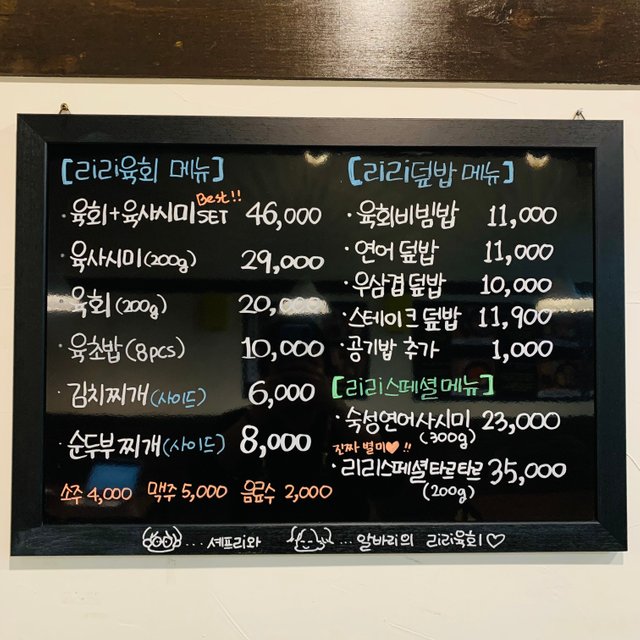 [리리육회 메뉴]
Best!!
· 육회+육사시미 SET 46,000
· 육사시미 (200g) 29,000
· 육회 (200g) 20,000
· 육초밥 (8pcs) 10,000
· 김치찌개 (사이드) 6,000
· 순두부찌개 (사이드) 8,000
소주 4,000 맥주 5,000 음료수 2,000
[리리덮밥 메뉴]
· 육회비빔밥 11,000
· 연어 덮밥 11,000
· 우삼겹 덮밥 10,000
· 스테이크 덮밥 11,900
· 공기밥 추가 1,000
[리리스페셜메뉴]
· 숙성연어사시미 23,000
(300g)
진짜 별미♥!!
· 리리스페셜타르타르 35,000
(200g)
... 셰프리와 ... 알바리의 리리육회♡